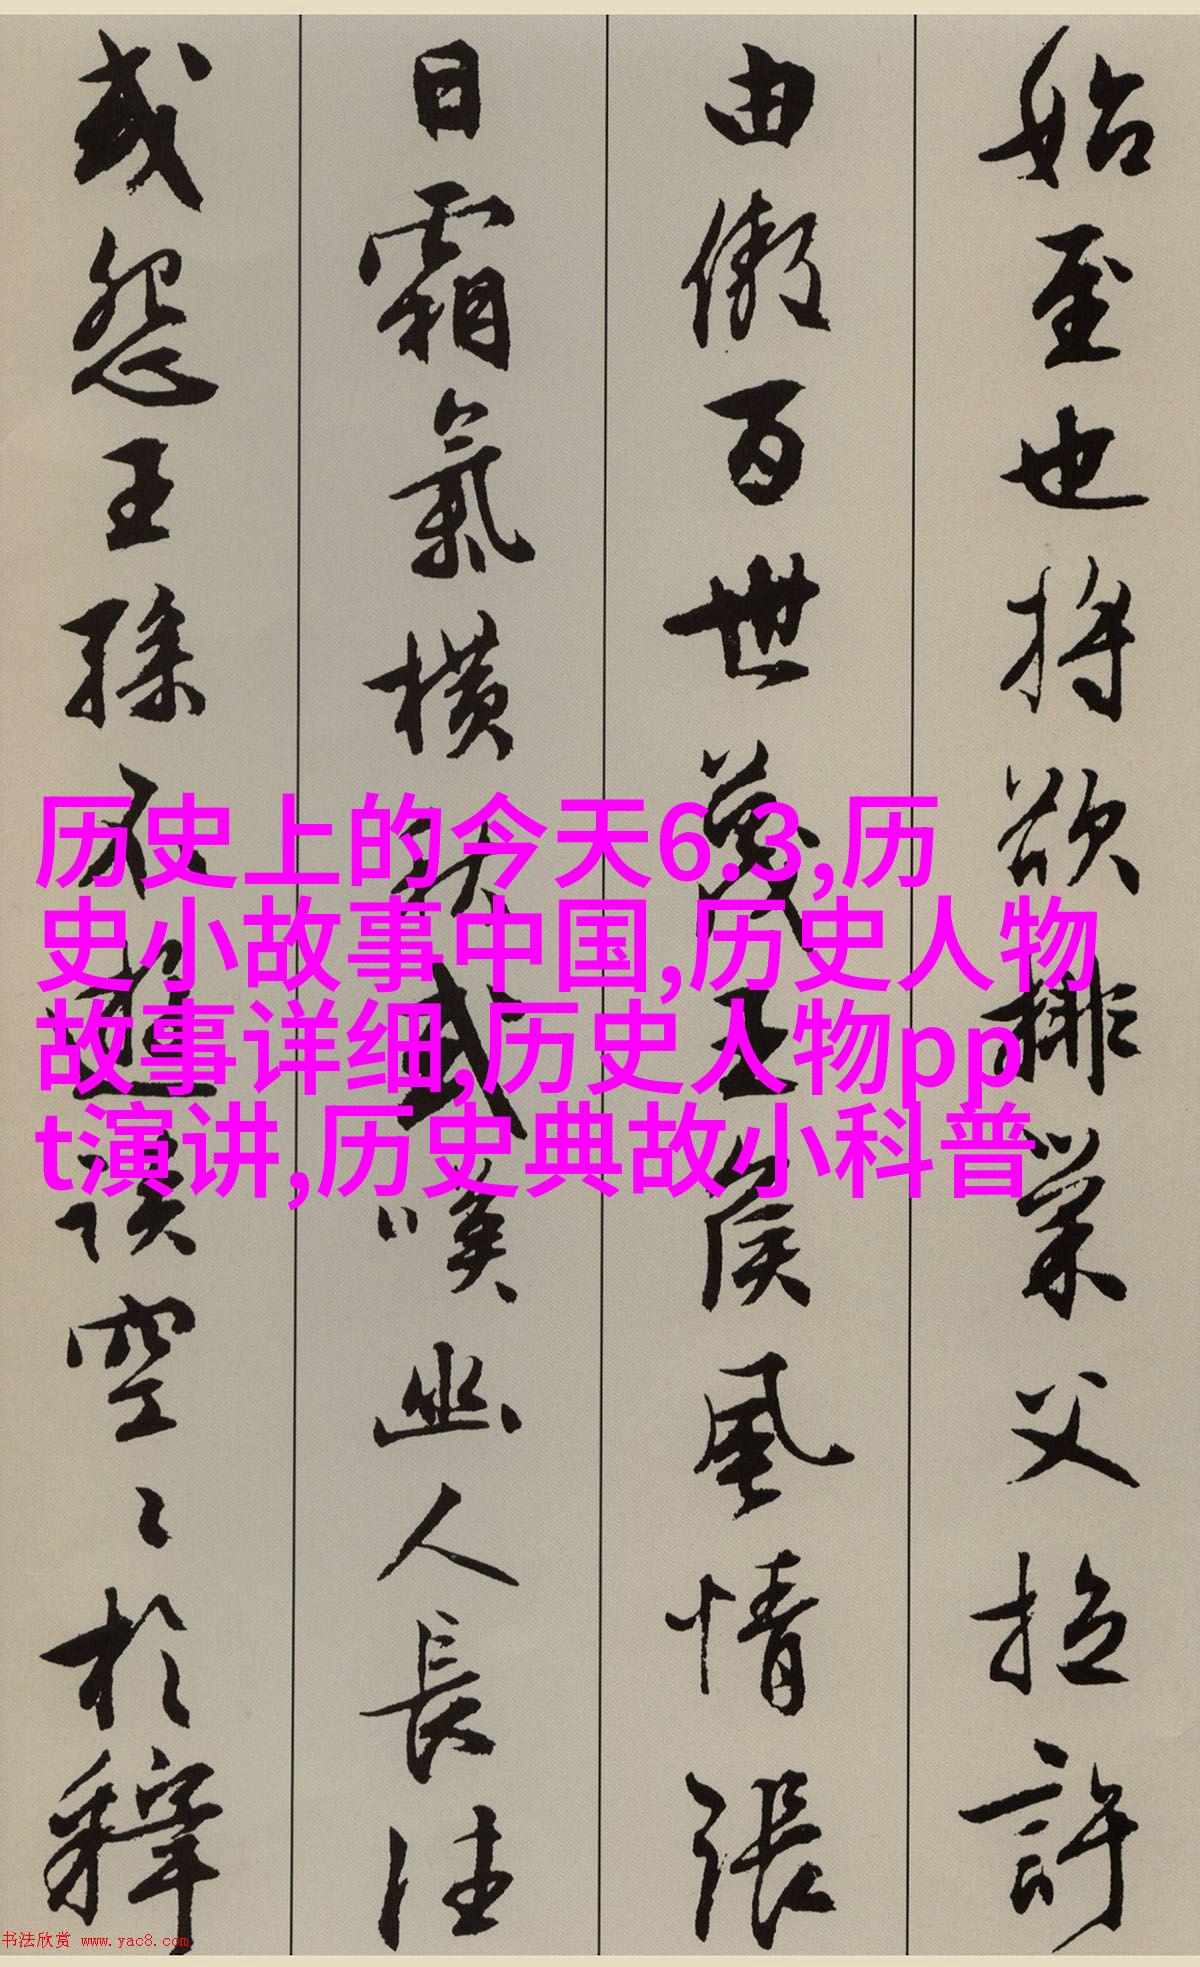 始至也將欲排巢父拉許
由傲百世蔑王侯風情張
日霜氣橫秋或嘆幽人長往
或怨王孫不遊談空〻於釋
历史上的今天6.3,历
史小故事中国,历史人物
故事详细,历史人物pp
t演讲,历史典故小科普
书法欣赏 www.yac8.com